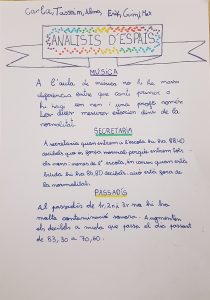 Carla, Tassnim,
ANALISIS D'ESPAIS
MÚSICA
A l'aula de música no hi ha massa
diferencia entre que canti primer o
hi hagi un nen i una profe només
Les dues mesures estarien dins de la
normalitat.
SECRETARIA
A secretaria quan entrem a l'escola hi ha 88,40
decibels que es força normal perquè entrem tots
els nens i nenes de l'escola, en canvi quan està
buida hi ha 84,80 decibels això està fora de
la normalitat.
PASSADÍS
Al passadís de 1r, 2n i 3r no hi ha
molta contaminació sonora. Augmenten
els decibels a mida que passa el dia passant
de 83,30 a 70,60.